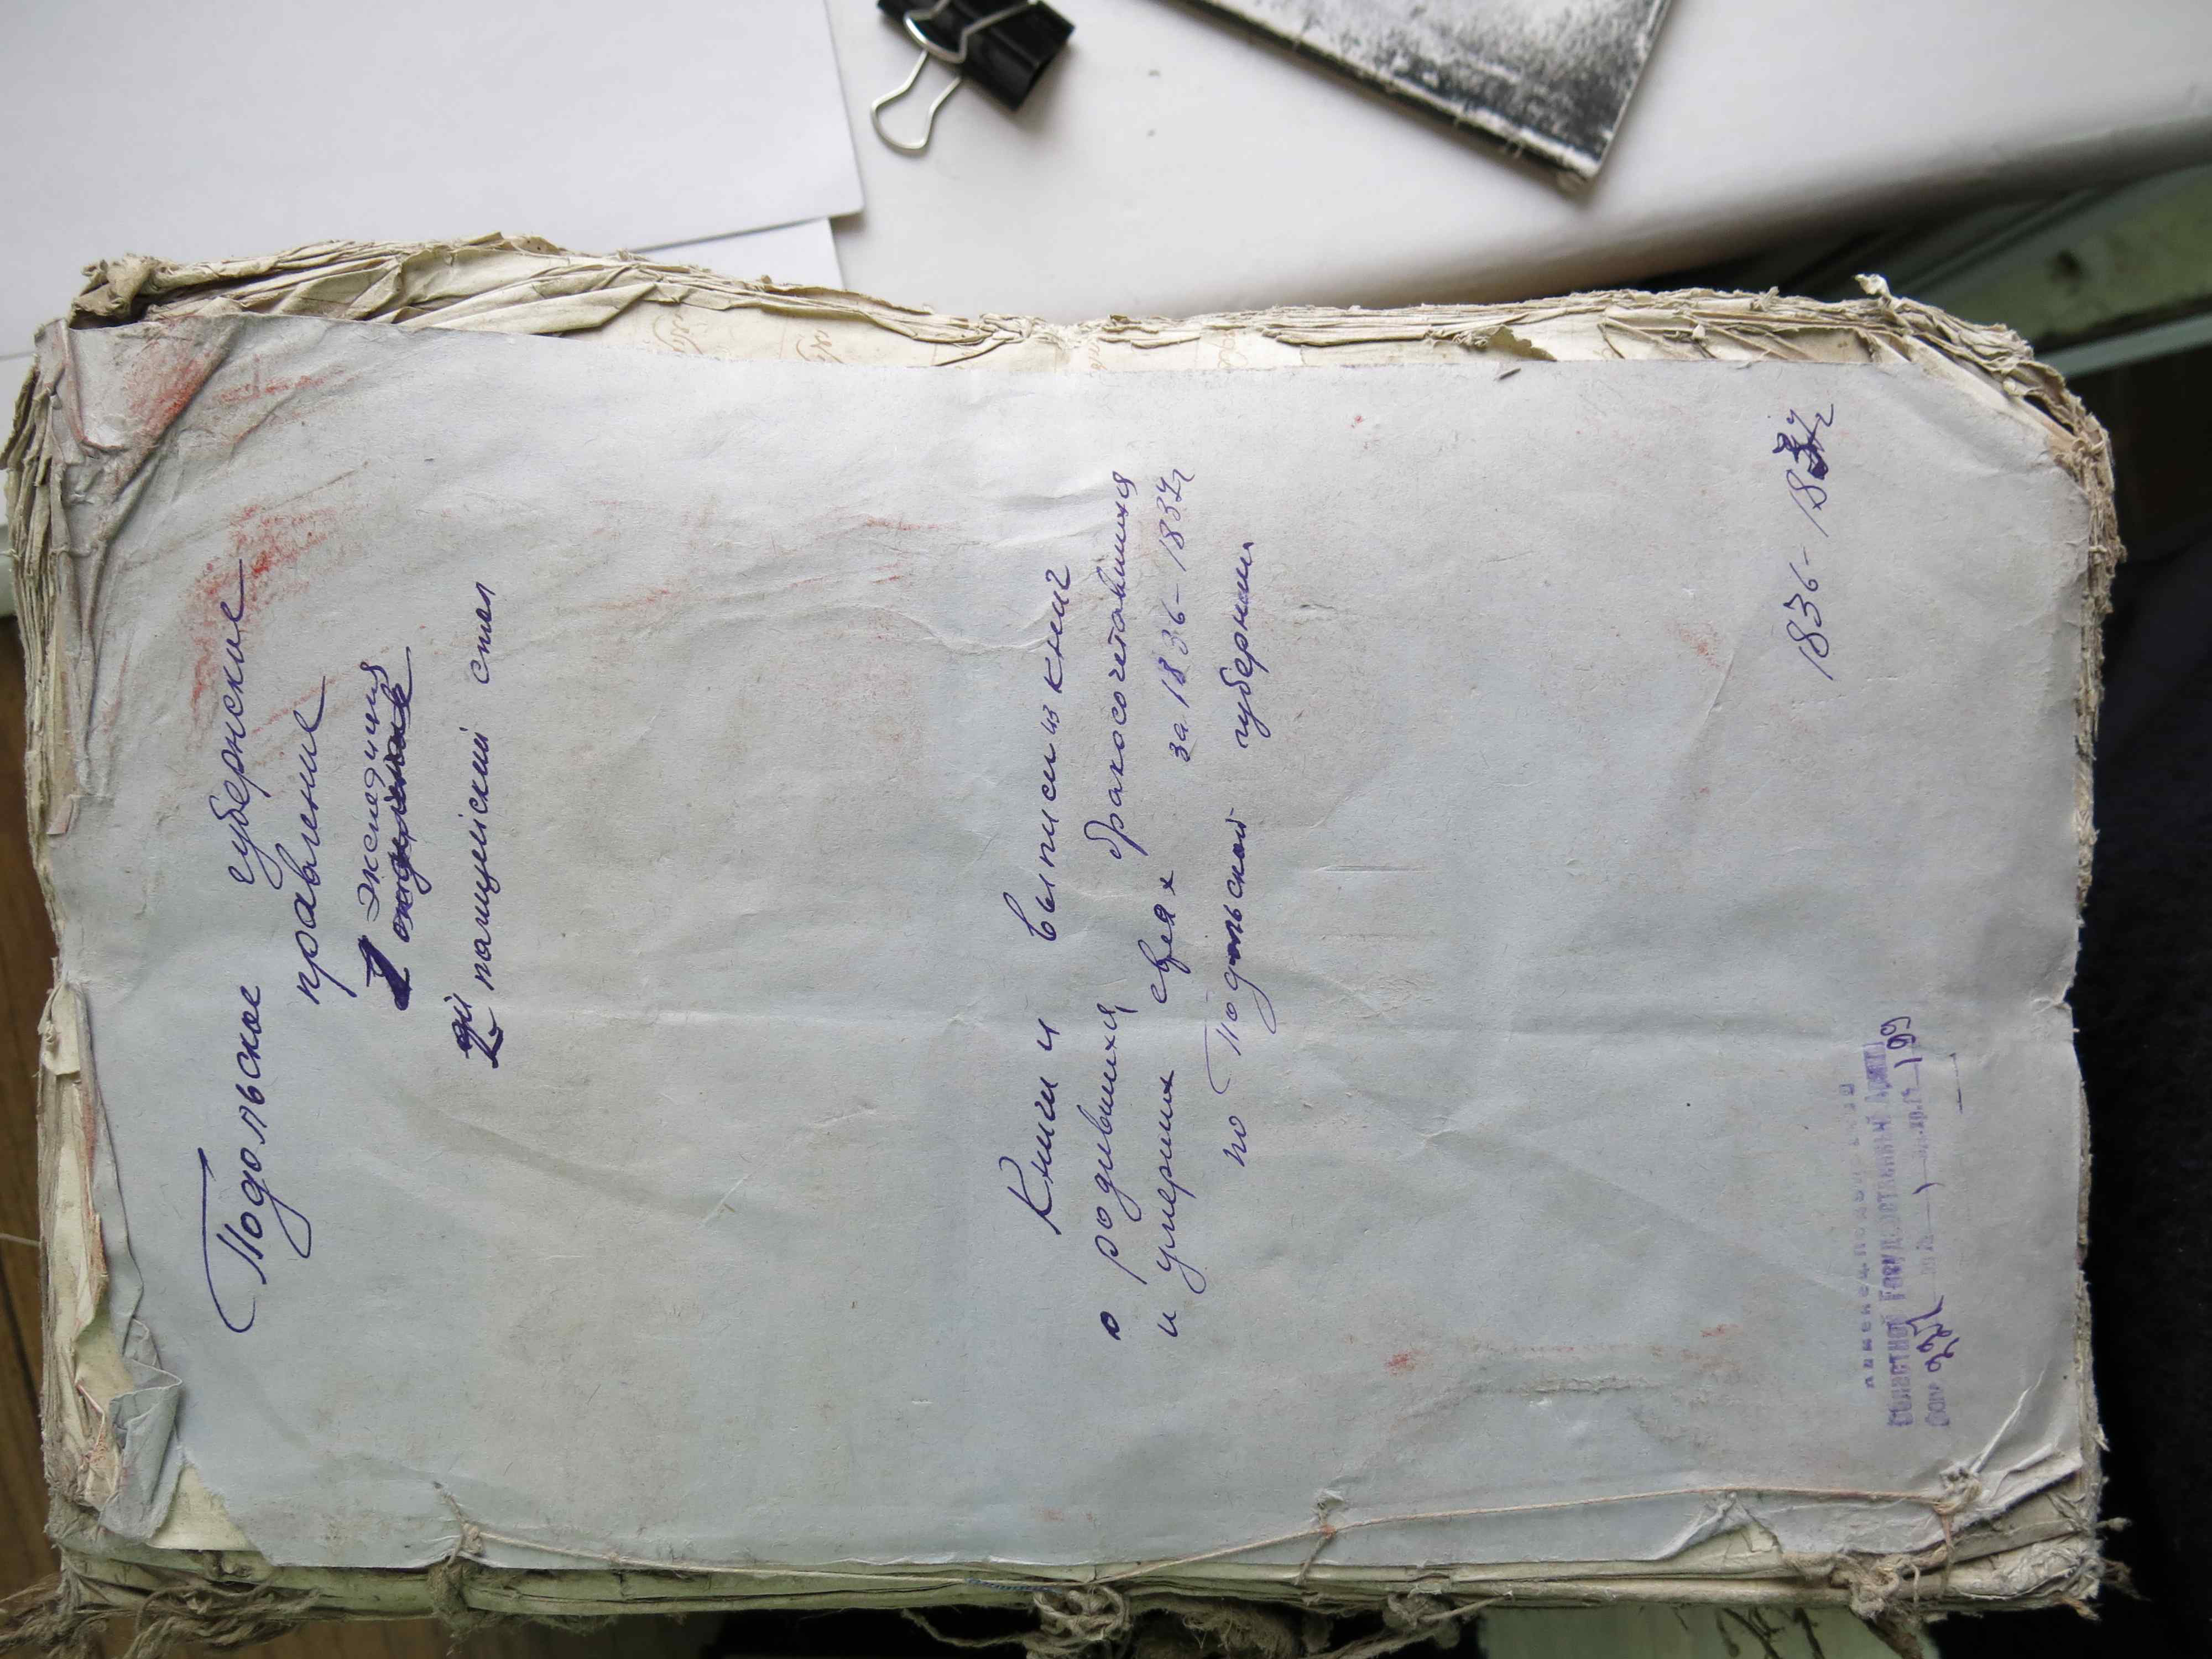 Подольское губернское
правление
1 экспедиция
отделение
2й полицейский стол
Книги и выписи из книг
о родившихся, бракосочетавшихся
и умерших евреях за 1836-1837г
по Подольской губернии
1836-1837г
Областной Государственный Архив
Фонд 227